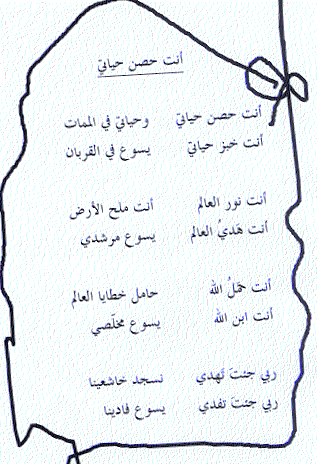 أنت حصن حياتيّ
أنت حصن حياتيّ وحياتيّ في الممات
أنت خبز حياتيّ يسوع في القربان
أنت نور العالم أنت ملح الأرض
أنت هَديُ العالم يسوع مرشدي
أنت حَمَلُ الله حامل خطايا العالم
أنت ابن الله يسوع مخلّصي
ربي جئتَ تَهدي نسجد خاشعينا
ربي جئتَ تفدي يسوع فادينا